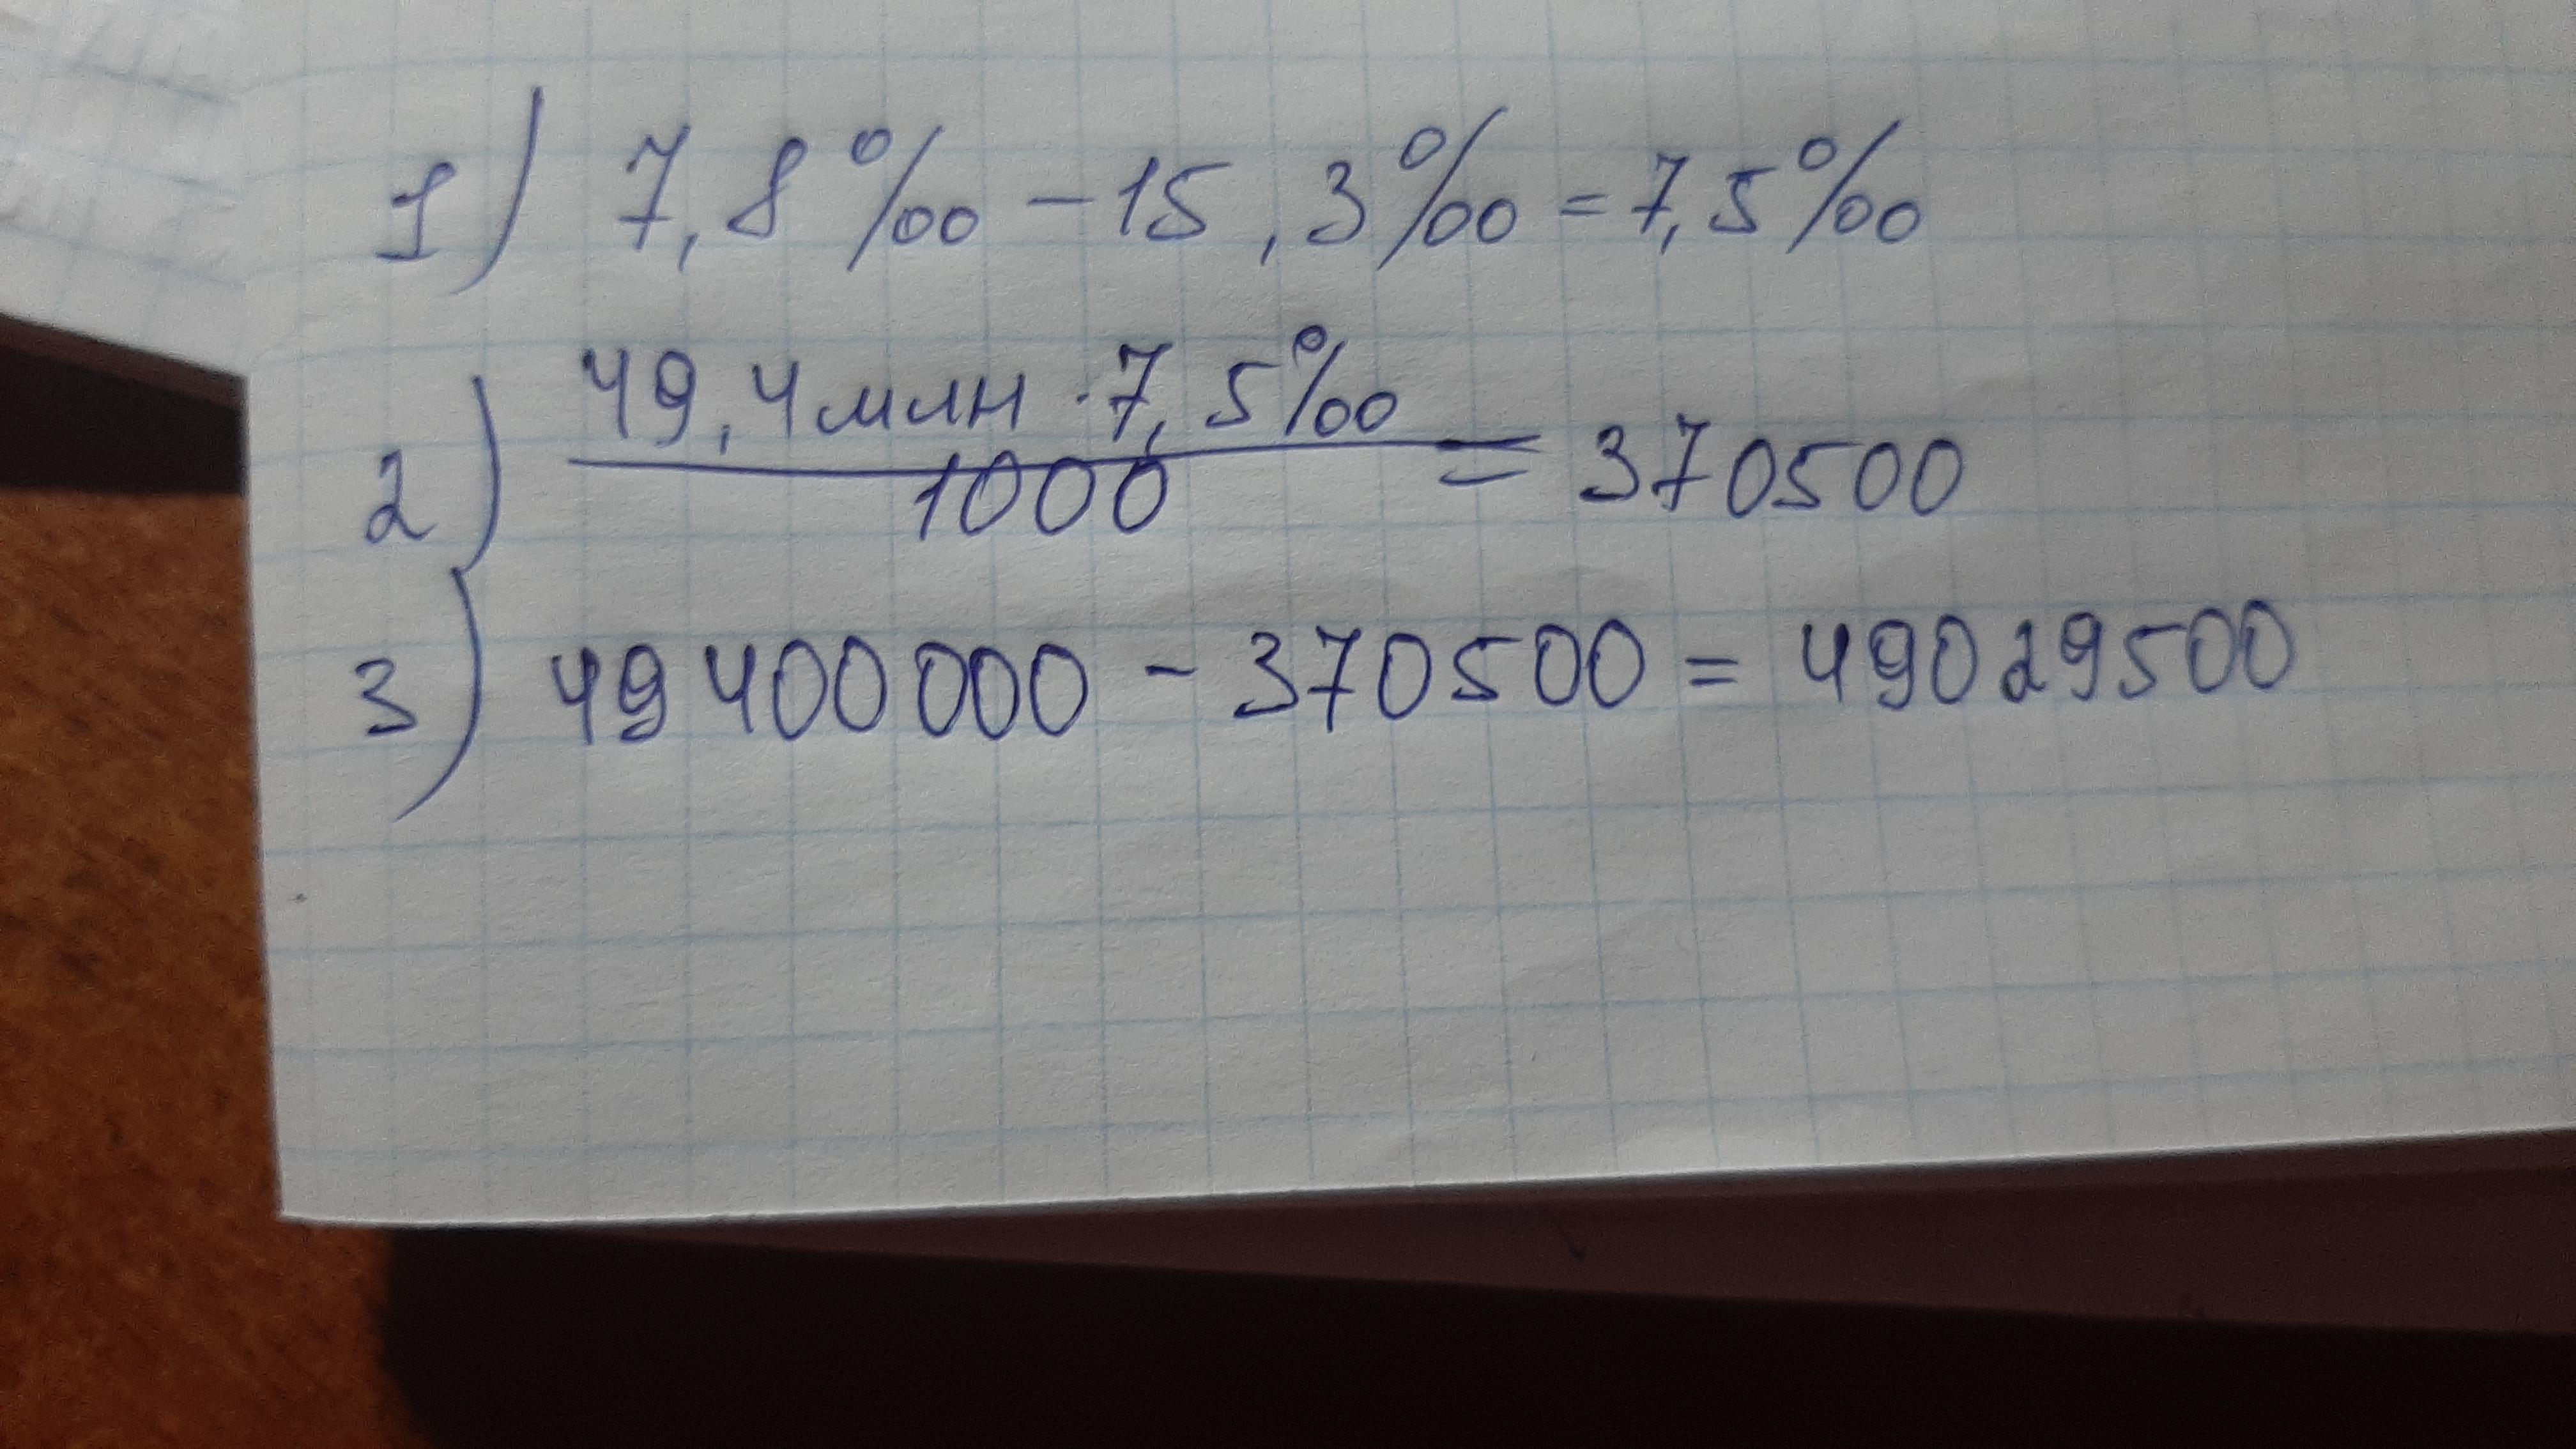 1) 7,8‰ – 15,3‰ = 7,5‰
2) 49,4 млн · 7,5‰ / 1000 = 370500
3) 49 400 000 – 370500 = 49029500